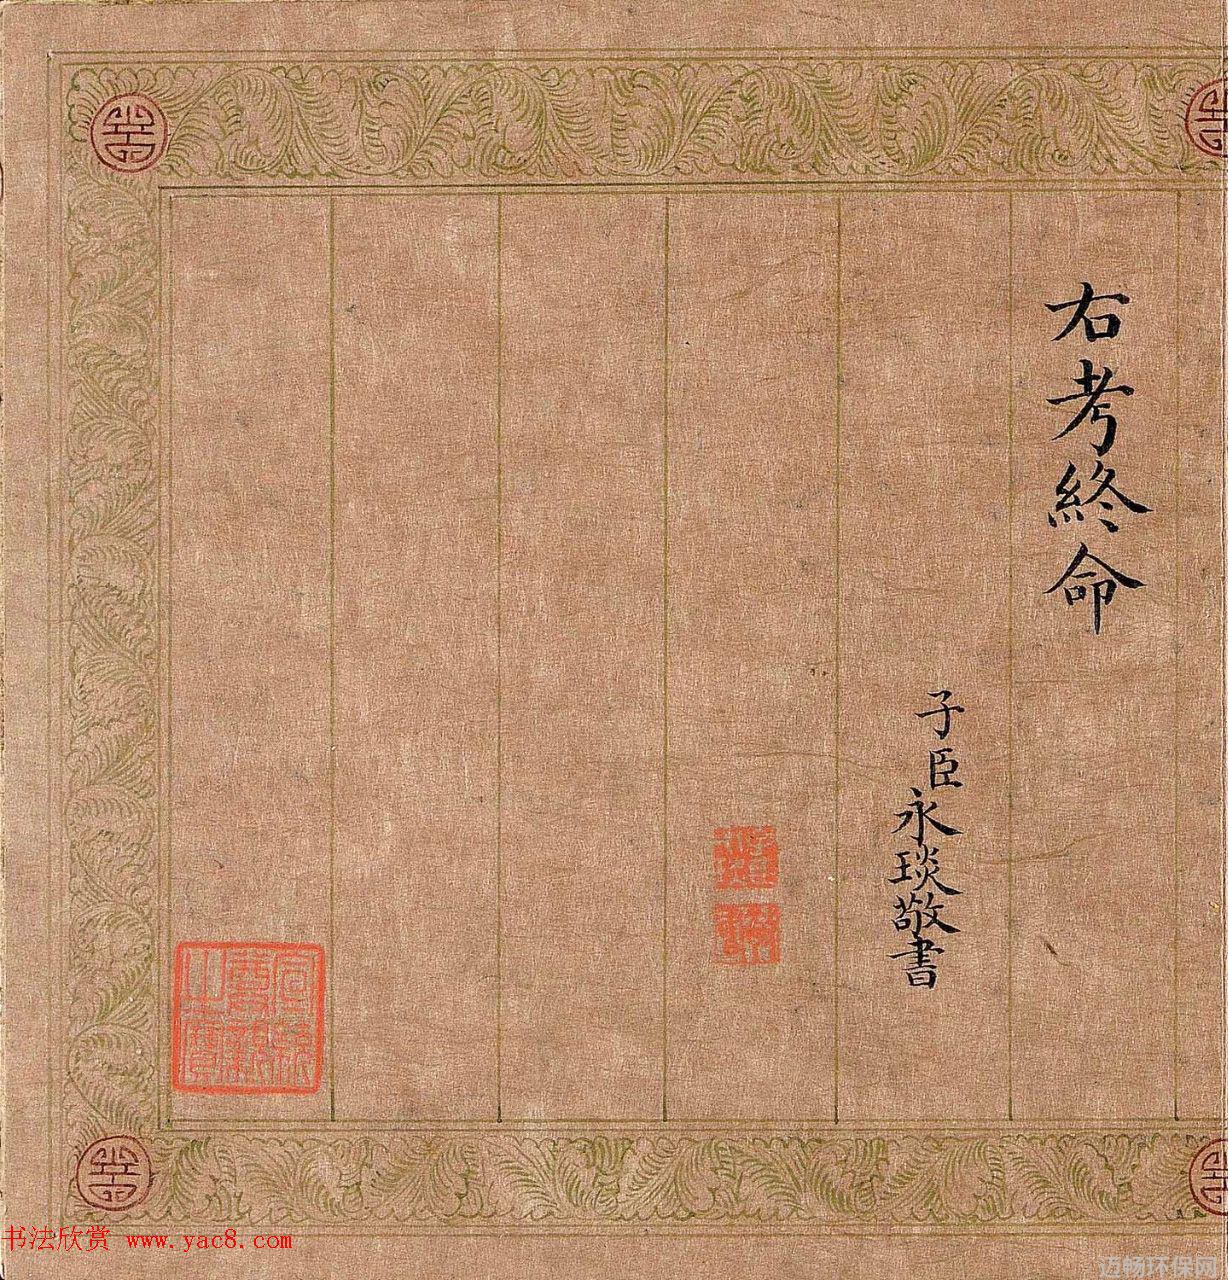 右考終命
子臣永琰敬書
宣統御覽之寶
书法欣赏 www.yac8.com
迈畅环保网